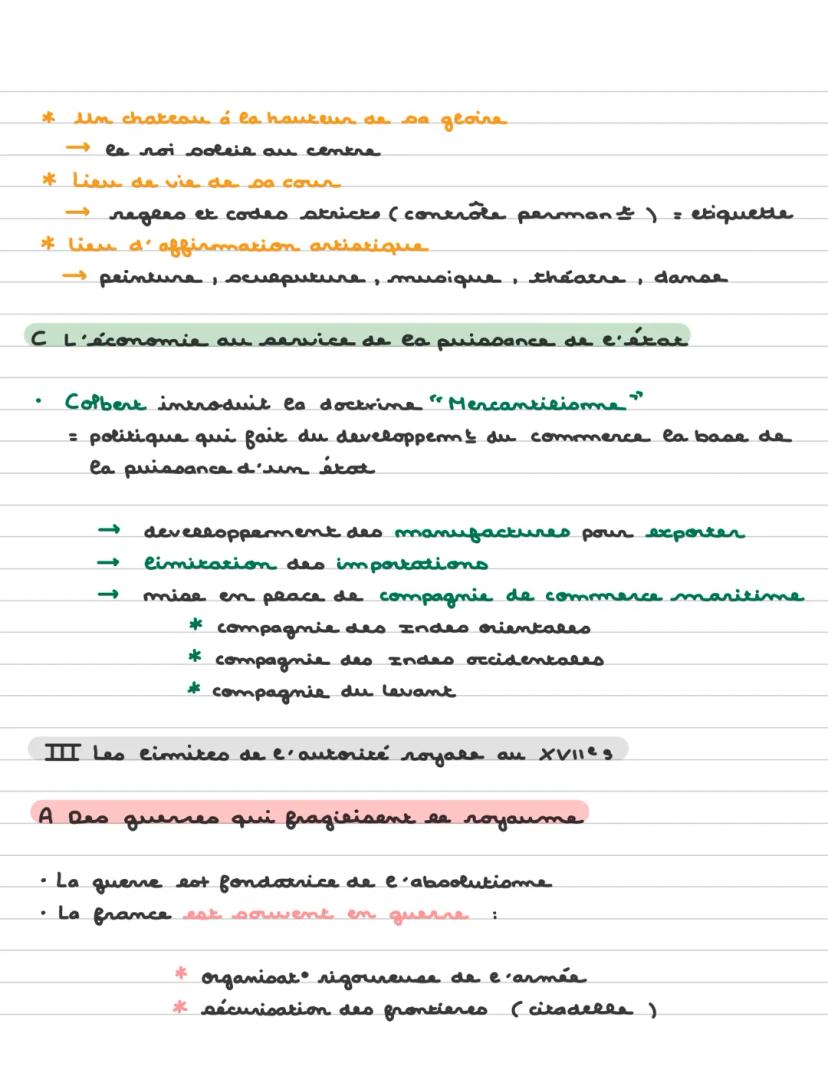 * Un chateau á la hauteur de sa gloire
→ le roi soleil au centre
* Lieu de vie de sa cour
→ regles et codes stricts ( contrôle permant ) = etiquette
* Lieu d'affirmation artistique
→ peinture , sculputure , musique , théatre , danse
C L'économie au service de la puissance de l'état
· Colbert introduit la doctrine "Mercantilisme"
= politique qui fait du developpemt du commerce la base de
la puissance d'un état
→ developpement des manufactures pour exporter
→ limitation des importations
→ mise en place de compagnie de commerce maritime
* compagnie des Indes orientales
* compagnie des Indes occidentales
* compagnie du Levant
III Les limites de l'autorité royale au XVIIe s
A Des guerres qui fragilisent le royaume
· La guerre est fondatrice de l'absolutisme
· La france est souvent en guerre :
* organisat° rigoureuse de l'armée
* sécurisation des frontieres ( citadelle )